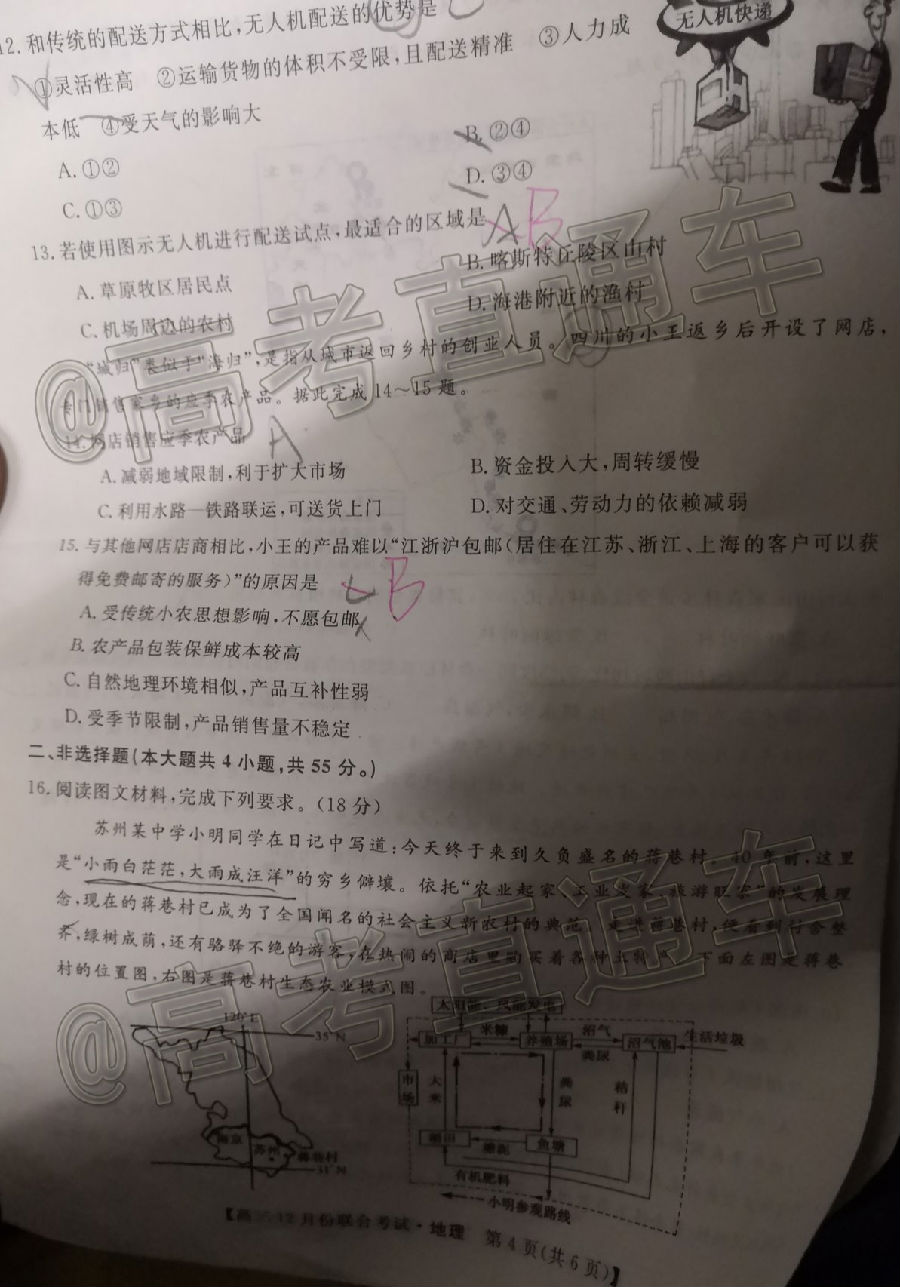 12. 和传统的配送方式相比,无人机配送的优势是
①灵活性高 ②运输货物的体积不受限,且配送精准 ③人力成
本低 ④受天气的影响大
A. ①②
B. ②④
C. ①③
D. ③④
无人机快递
13. 若使用图示无人机进行配送试点,最适合的区域是
A
B
A. 草原牧区居民点
B. 喀斯特丘陵区山村
C. 机场周边的农村
D. 海港附近的渔村
“城归”类似于“海归”,是指从城市返回乡村的创业人员。四川的小王返乡后开设了网店,
专门销售家乡的应季农产品。据此完成14~15题。
14. 网店销售应季农产品
A
A. 减弱地域限制,利于扩大市场
B. 资金投入大,周转缓慢
C. 利用水路—铁路联运,可送货上门
D. 对交通、劳动力的依赖减弱
15. 与其他网店店商相比,小王的产品难以“江浙沪包邮(居住在江苏、浙江、上海的客户可以获
得免费邮寄的服务)”的原因是
B
A. 受传统小农思想影响,不愿包邮
B. 农产品包装保鲜成本较高
C. 自然地理环境相似,产品互补性弱
D. 受季节限制,产品销售量不稳定
二、非选择题(本大题共4小题,共55分。)
16. 阅读图文材料,完成下列要求。(18分)
苏州某中学小明同学在日记中写道:今天终于来到久负盛名的蒋巷村。40年前,这里
是“小雨白茫茫,大雨成汪洋”的穷乡僻壤。依托“农业起家、工业发家、旅游旺家”的发展理
念,现在的蒋巷村已成为了全国闻名的社会主义新农村的典范。走进蒋巷村,便看到行舍整
齐,绿树成荫,还有骆驿不绝的游客,在热闹的商店里购买着各种土特产。下面左图是蒋巷
村的位置图,右图是蒋巷村生态农业模式图。
120°E
35°N
南京
苏州
蒋巷村
31°N
太阳能、风能发电
加工厂
米糠
养殖场
沼气
粪尿
沼气池
生活垃圾
市场
大米
粪尿
秸秆
稻田
塘泥
鱼塘
有机肥料
小明参观路线
12月份联合考试·地理 第4页(共6页)】
@高考直通车
@高考直通车